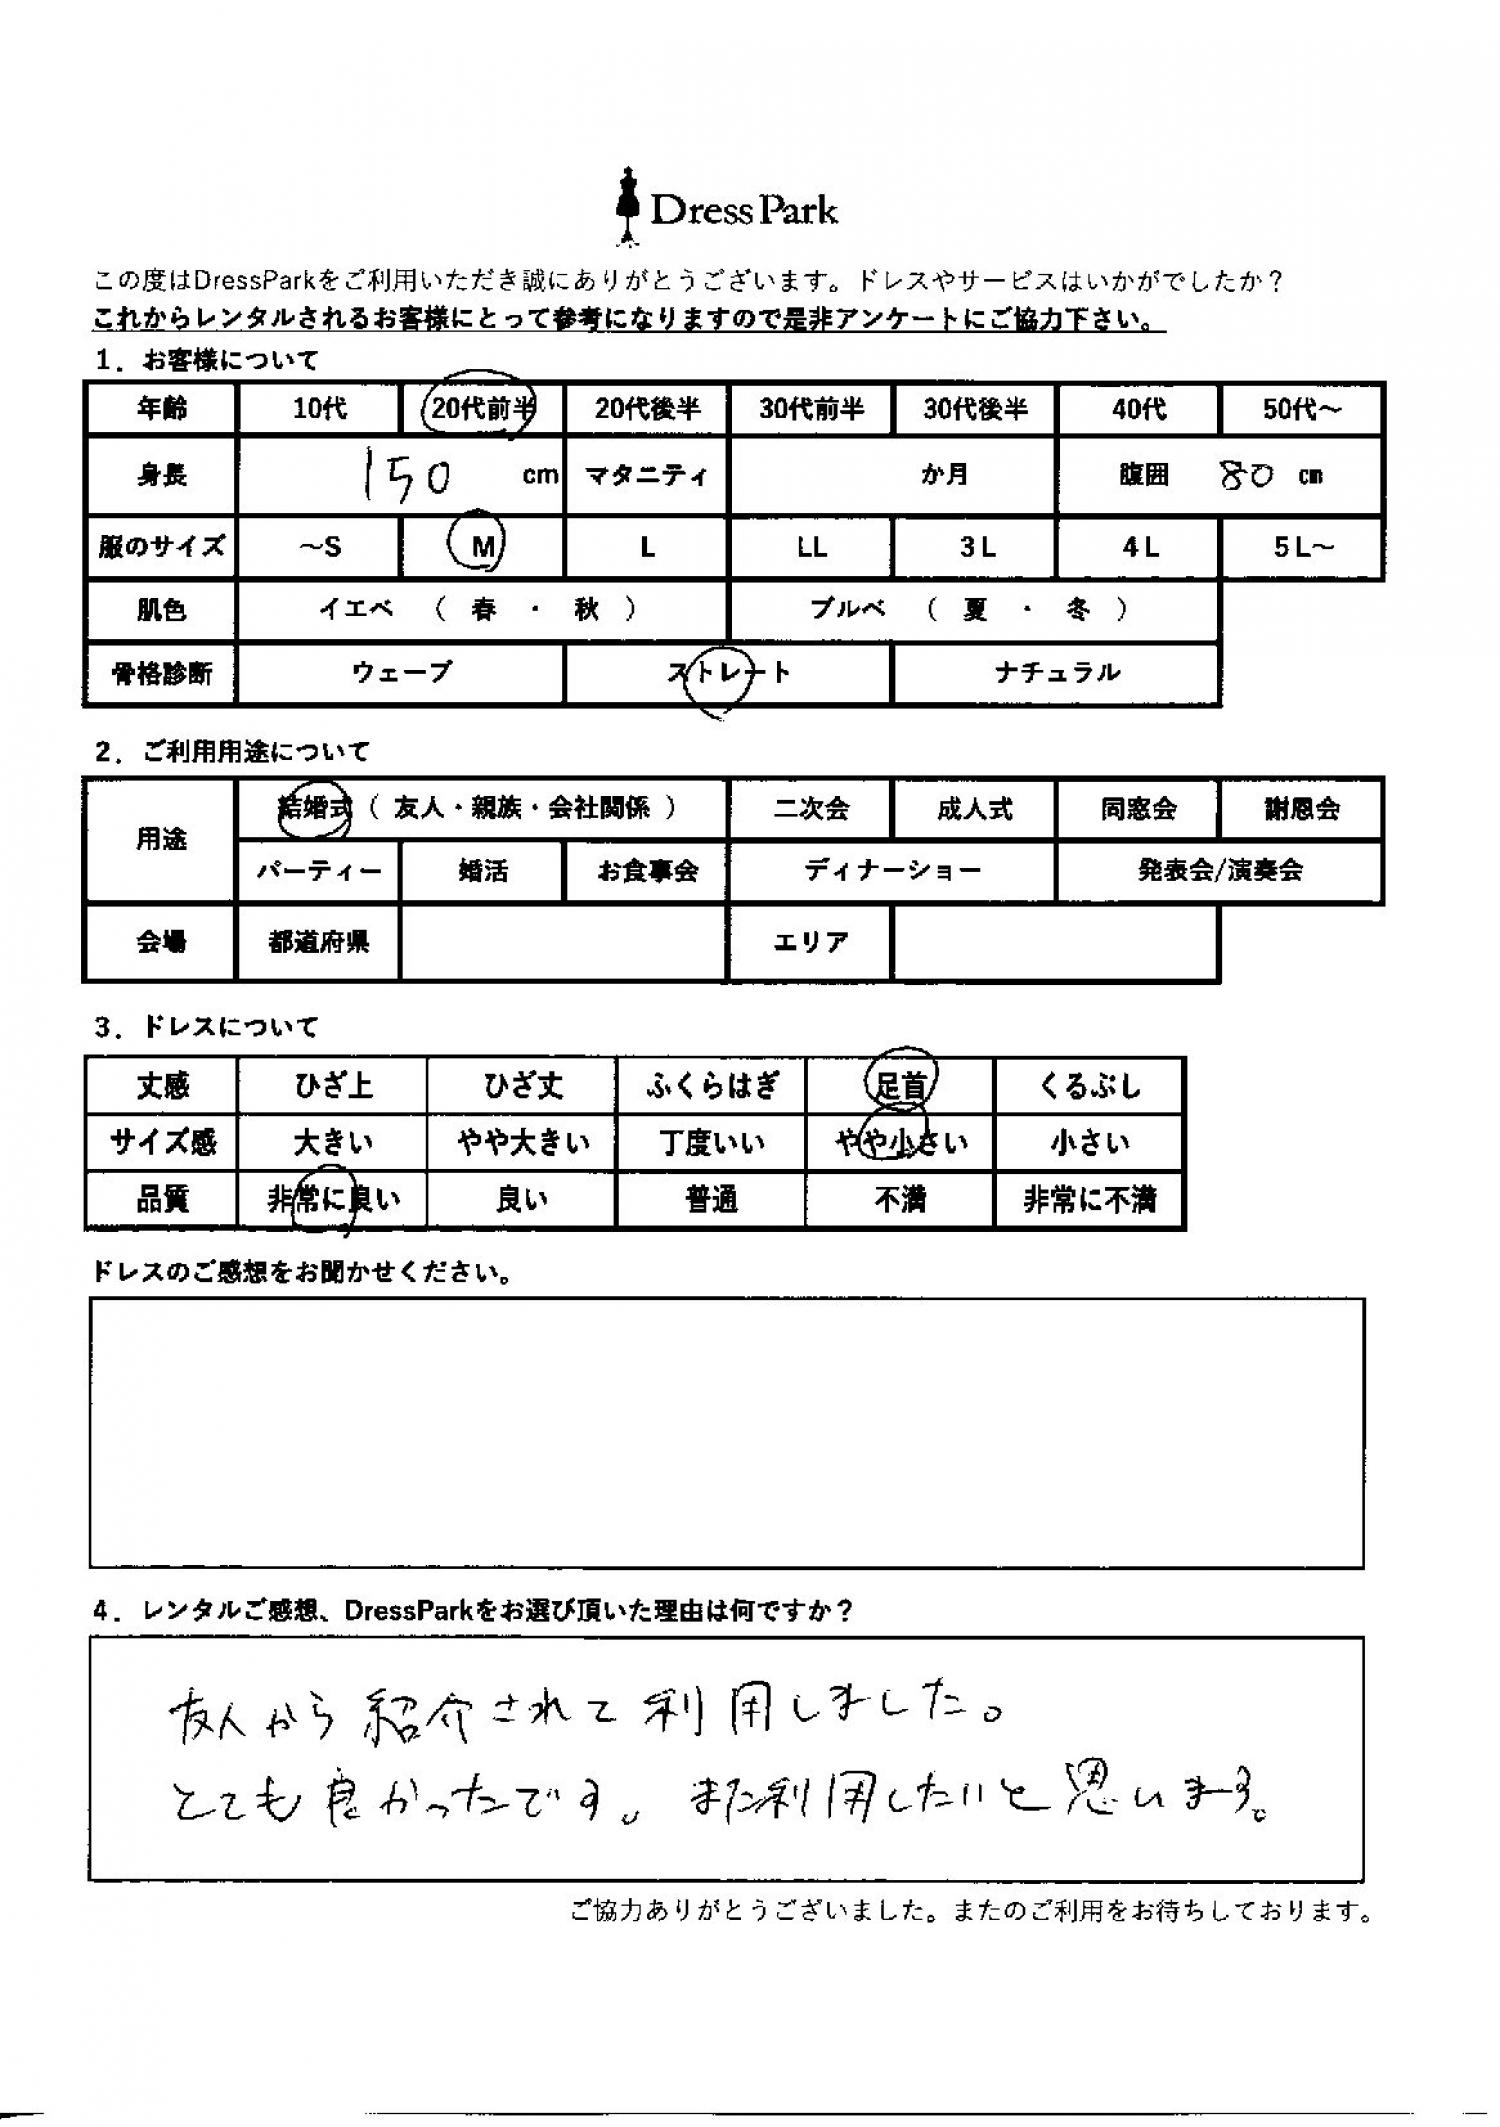 Dress Park
この度はDressParkをご利用いただき誠にありがとうございます。ドレスやサービスはいかがでしたか？
これからレンタルされるお客様にとって参考になりますので是非アンケートにご協力下さい。
1．お客様について
年齢 10代 20代前半 20代後半 30代前半 30代後半 40代 50代～
身長 150 cm マタニティ か月 腹囲 80 cm
服のサイズ ～S M L LL 3L 4L 5L～
肌色 イエベ （ 春 ・ 秋 ） ブルベ （ 夏 ・ 冬 ）
骨格診断 ウェーブ ストレート ナチュラル
2．ご利用用途について
用途 結婚式（ 友人・親族・会社関係 ） 二次会 成人式 同窓会 謝恩会
パーティー 婚活 お食事会 ディナーショー 発表会/演奏会
会場 都道府県 エリア
3．ドレスについて
丈感 ひざ上 ひざ丈 ふくらはぎ 足首 くるぶし
サイズ感 大きい やや大きい 丁度いい やや小さい 小さい
品質 非常に良い 良い 普通 不満 非常に不満
ドレスのご感想をお聞かせください。
4．レンタルご感想、DressParkをお選び頂いた理由は何ですか？
友人から紹介されて利用しました。
とても良かったです。また利用したいと思います。
ご協力ありがとうございました。またのご利用をお待ちしております。